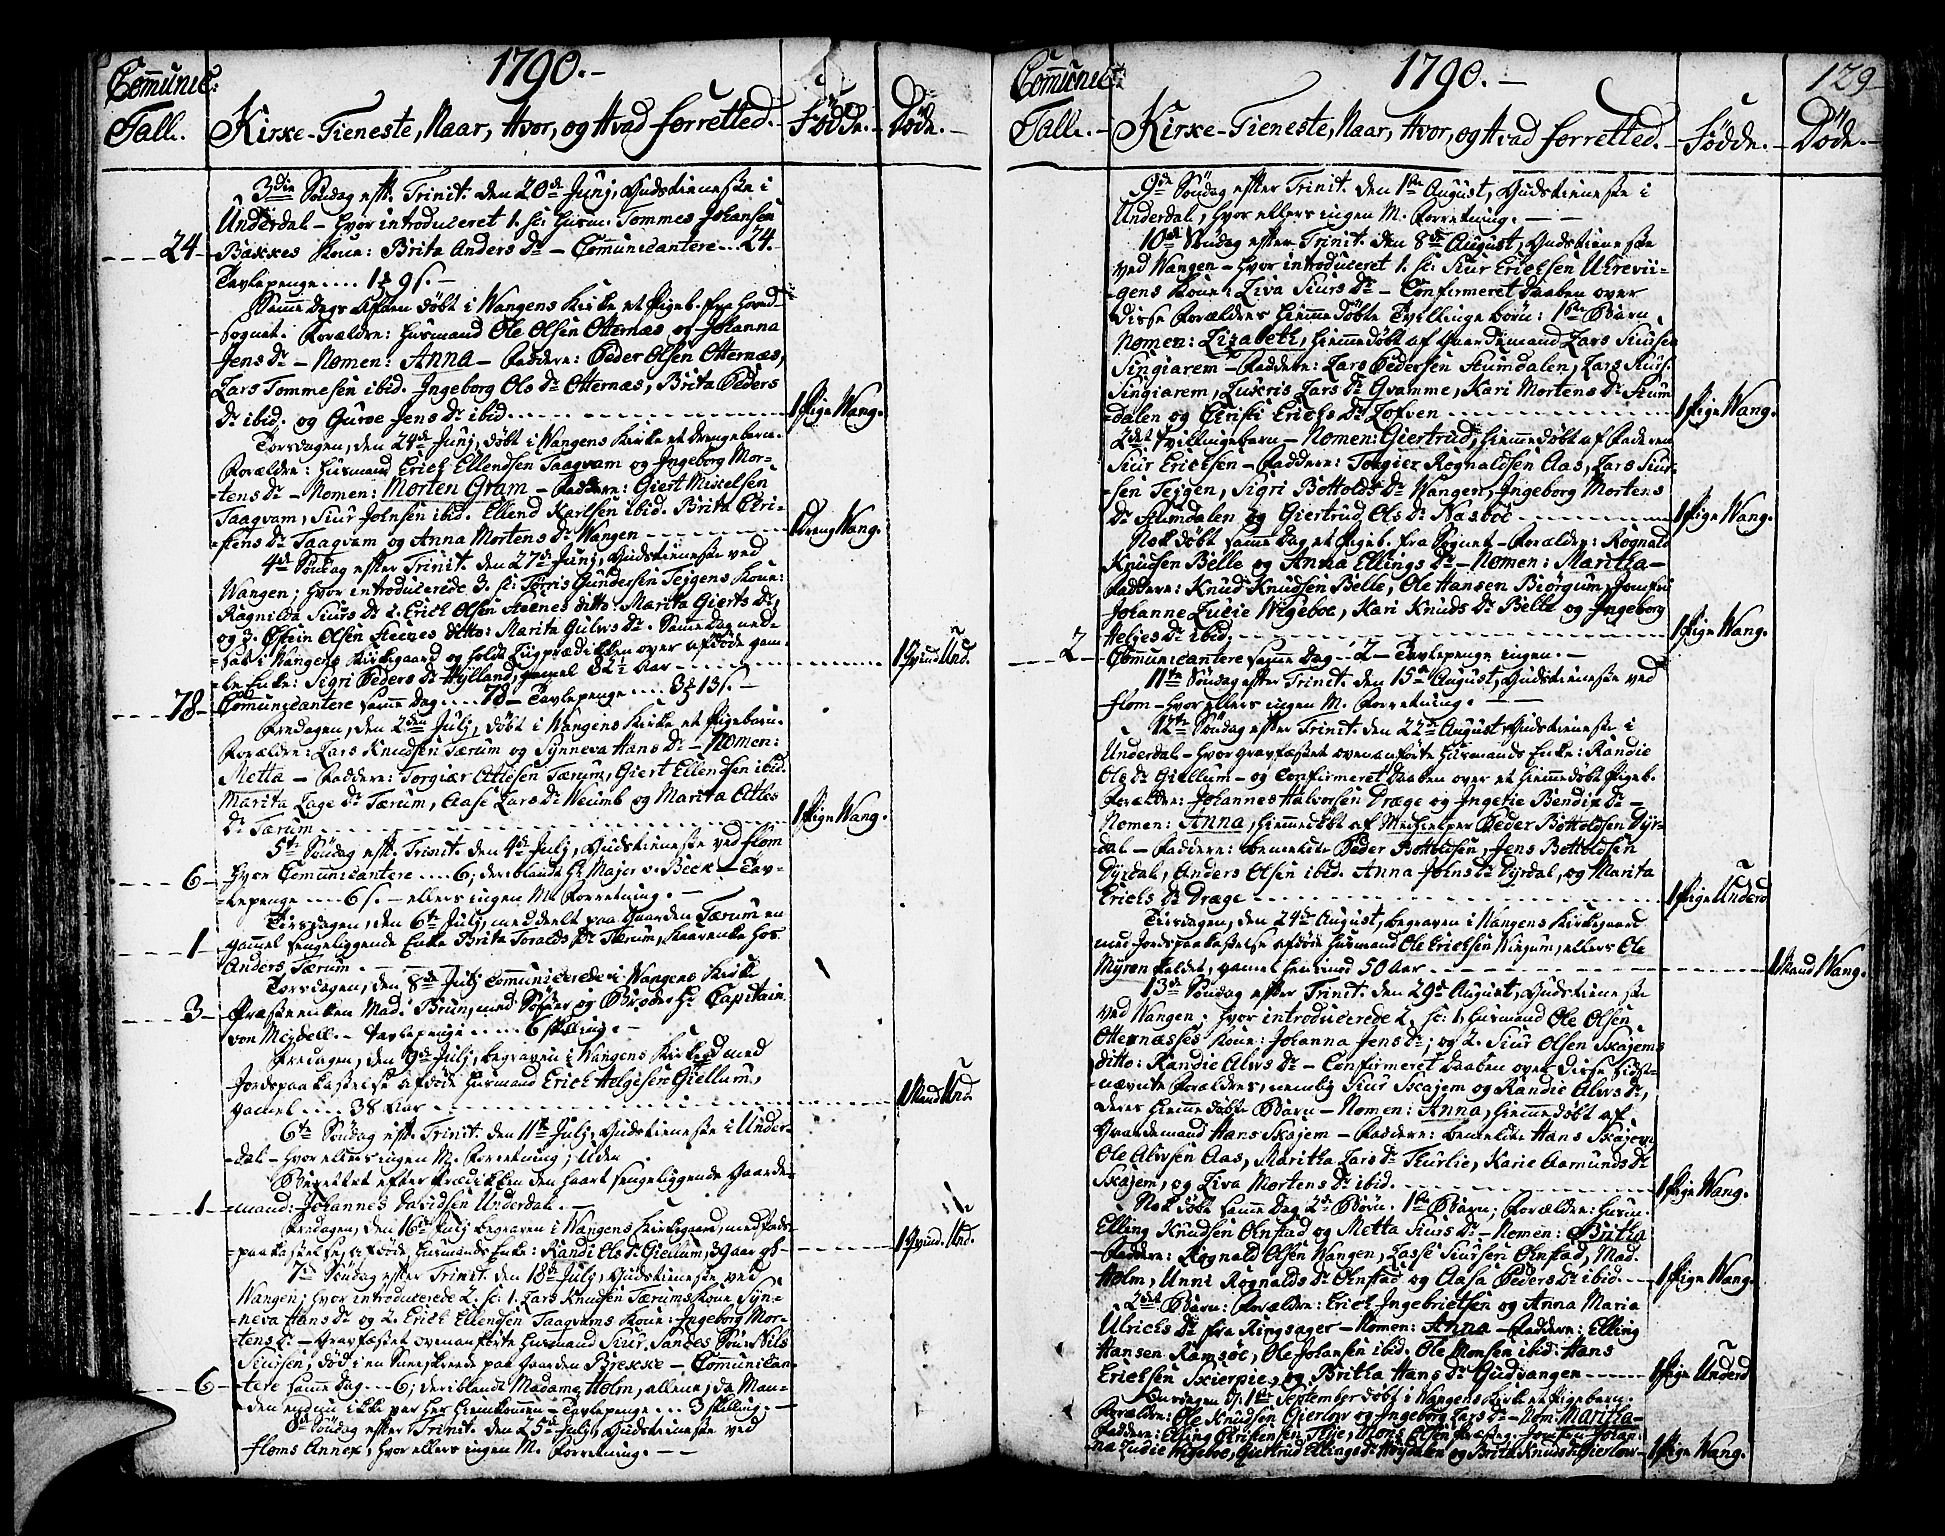 Communic:
Tall.
1790.-
Kirke-Tieneste, Naar, Hvor, og Hvad forretted.-
Födde.-
Döde.-
3die Söndag eft. Trinit. den 20de Junj, Gudstieneste i
Underdal - hvor introduceret 1. sc: Husm. Tommes Johansen
24 - Bakkes Kone: Brita Anders Dr - Communicantere...24.
Tavlepenge.... 1 9 s. -
Samme Dags Aften döbt i Wangens Kirke et Pigeb. fra Hoved
-sognet. Forældre: Husmand Ole Olsen Otternæs og Johanna
Jens Dr - Nomen: Anna - Faddere: Peder Olsen Otternæs,
Lars Tommesen ibid. Ingeborg Ols Dr Otternæs, Brita Peders
Dr ibid. og Guroe Jens Dr ibid. 1 Pige Wang.
Torsdagen, den 24de Junj, döbt i Wangens Kirke et drengebarn.
Forældre: Husmand Erich Ellendsen Taagvam og Ingeborg Mor-
-tens Dr - Nomen: Morten Gram - Faddere: Giert Mikelsen
Taagvam, Siur Johnsen ibid. Ellend Karlsen ibid. Brita Chri-
-stens Dr Taagvam og Anna Mortens Dr Wangen 1 Dreng Wang.
4de Söndag efter Trinit. den 27de Junj, Gudstieneste ved
Wangen; hvor introducerede 3. sc: Törris Gundersen Tejgens Kone:
Ragnilda Siurs Dr 2. Erich Olsen Steenes ditto: Marita Gierts Dr,
og 3. Östein Olsen Steenes ditto: Marita Gulvs Dr. Samme Dag ned-
-sat i Wangens Kirkegaard og holdt Liigprædikken over afdöde gam-
-le Enke: Sigri Peders Dr Hylland, gamel 82½ Aar 1 Qvind Und.
78 - Communicantere samme Dag .... 78 - Tavlepenge .... 3 13 s. -
Fredagen, den 2den Julj, döbt i Wangens Kirke et Pigebarn.
Forældre: Lars Knudsen Tærum og Synneva Hans Dr - Nomen:
Metta - Faddere: Torgier Attlesen Tærum, Giert Ellendsen ibid.
Marita Lage Dr Tærum, Aase Lars Dr Weumb og Marita Atles
Dr Tærum 1 Pige Wang.
5te Söndag eft. Trinit. den 4de Julj, Gudstieneste ved Flom
6 - hvor Communicantere ....6; deriblandt Hr Major v. Beck - Tav-
-lepenge .... 6 s. - ellers ingen M. Forretning. -
Tirsdagen, den 6te Julj, meddeelt paa Gaarden Tærum en
1 - gammel sengeliggende Enke Brita Toralds Dr Tærum, Kaarenke hos
Anders Tærum
Torsdagen, den 8de Julj Communicerede i Wangens Kirke
3 - Præsteenken Mad. Brun, med Söster og Broder Hr Capitain
von Mejdell.- Tavlepenge ..... 6 skilling. -
Fredagen, den 9de Julj, begraven i Wangens Kirkegd med
Jordspaakastelse afdöde Husmand Erich Helgesen Giellum,
gamel .... 38 Aar 1 Mand Und
6te Söndag eft. Trinit. den 11te Julj, Gudstieneste i Under-
-dal - hvor ellers ingen M. Forretning; uden
Berettet efter Prædikken den haart sengeliggende Gaarde-
1 - -mand: Johannes Davidsen Underdal. -
Fredagen, den 16de Julj begraven i Wangens Kirkegaard, med Jords-
-paakastelse, afdöde Husmands Enke: Randi Ols Dr Giellum, 39 aar gl- 1 Qvind. Und.
7de Söndag efter Trinit. den 18de Julj, Gudstieneste ved
Wangen; hvor introducerede 2. sc: 1. Lars Knudsen Tærums Kone Syn-
-neva Hans Dr og 2. Erich Ellendsen Taagvams Kone: Ingeborg Mor-
-tens Dr - Gravfæstet ovenanförte Husmand Siur Sandes Sön: Nils
Siursen, död i en Sneeskreede paa Gaarden Brekke - Communican-
6 - -tere samme Dag ...6; deriblandt Madame Holm, allene; da Man-
-den endnu ikke var her hiemkommen - Tavlepenge ... 3 skilling. -
8de Söndag efter Trinit. den 25de Julj, Gudstieneste ved
Floms Annex, hvor ellers ingen M. Forretning. - -
Communic:
Tall. -
1790. -
129
Kirke-Tieneste, Naar, Hvor, og Hvad forretted.-
Födde.-
Döde.-
9de Söndag efter Trinit. den 1ste August, Gudstieneste i
Underdal, hvor ellers ingen M. Forretning. - -
10de Söndag efter Trinit. den 8de August, Gudstieneste
ved Wangen - hvor introduceret 1. sc: Siur Erichsen Uhrevii-
-gens Kone: Ziva Siurs Dr - Confirmeret Daaben over
disse Forældres hiemmedöbte Tvillingebörn: 1ste Barn,
Nomen: Lisabeth, hiemmedöbt af Gaardemand Lars Siursen
Singiarem - Faddere: Lars Pedersen Stumdalen, Lars Siurs.
Singiarem, Zuseris Lars Dr Gvamme, Kari Mortens Dr Stum
-dalen og Christi Erichs Dr Loftven 1 Pige Wang.
2det Tvillingebarn - Nomen: Giertrud, hiemmedöbt af Faderen
Siur Erichsen - Faddere: Torgier Rognaldsen Aas, Lars Siur-
-sen Tejgen, Sigri Bottolds Dr Wangen, Ingeborg Mortens
Dr Stumdalen og Giertrud Ols Dr Nasboe 1 Pige Wang.
Nok döbt samme Dag et Pigeb. fra Sognet - Forældre: Rognald
Knudsen Belle og Anna Ellings Dr - Nomen: Maritha -
Faddere: Knud Knudsen Belle, Ole Hansen Biörgum, Jomfru
Johanne Lucie Wigeboe, Kari Knuds Dr Belle og Ingeborg
Heljes Dr ibid. 1 Pige Wang.
2 - Communicantere samme Dag .. 2 - Tavlepenge ingen. -
11te Söndag efter Trinit. den 15de August, Gudstieneste ved
Flom - hvor ellers ingen M. Forretning. - -
12te Söndag efter Trinit. den 22de August Gudstieneste i
Underdal - hvor gravfæstet ovenanförte Husmands Enke: Randie
Ols Dr Giellum - og Confirmeret Daaben over et hiemmedöbt Pigeb.
Forældre: Johannes Halvorsen Dræge og Ingerie Bendix Dr -
Nomen: Anna, hiemmedöbt af Medhielper Peder Bottoldsen Dyr-
-dal - Faddere: bemeldte Peder Bottoldsen, Jens Bottoldsen
Dyrdal, Anders Olsen ibid. Anna Johns Dr Dyrdal, og Marita
Erichs Dr Dræge 1 Pige Underd
Tirsdagen, den 24de August, begraven i Wangens Kirkegaard
med Jordspaakastelse afdöde Husmand Ole Erichsen Winjum, ellers Ole
Myren kaldet, gamel henimod 50 Aar 1 Mand Wang.
13de Söndag efter Trinit. den 29de August, Gudstieneste
ved Wangen. hvor introducerede 2. sc: 1. Husmand Ole Olsen
Otternæsses Kone: Johanna Jens Dr; og 2. Siur Olsen Skajems
ditto: Randie Alvs Dr - Confirmeret Daaben over disse sidst-
-nævnte Forældres, nemlig Siur Skajem og Randie Alvs Dr,
deres hiemmedöbte Barn - Nomen: Anna, hiemmedöbt af
Gaardemand Hans Skajem - Faddere: bemeldte Hans Skajem
Ole Alvsen Aas, Maritha Lars Dr Tkurlie, Karie Aamunds Dr
Skajem, og Ziva Mortens Dr ibid. 1 Pige Wang.
Nok döbt samme Dag 2de Börn. 1ste Barn; Forældre: Husm.
Elling Knudsen Ohnstad og Metta Siurs Dr - Nomen: Britha
Faddere: Rognald Olsen Wangen, Lasse Siursen Ohnstad, Mad.
Holm, Unni Rognalds Dr Ohnstad og Aasa Peders Dr ibid. 1 Pige Wang.
2det Barn: Forældre: Erich Ingebrietsen og Anna Maria
Ulrichs Dr fra Ringsager - Nomen: Anna - Faddere: Elling
Hansen Ramsöe, Ole Johansen ibid. Ole Monsen ibid: Hans
Erichsen Skierpie, og Britha Hans Dr Gudvangen 1 Pige Underd
Onsdagen d. 1ste September döbt i Wangens Kirke et Pigebarn.
Forældre: Ole Knudsen Gierlow og Ingeborg Lars Dr - Nom: Maritha -
Faddere: Elling Christensen Stie, Mons Olsen Præsteg. Jomfru Johan-
-na Lucie Wigeboe, Giertrud Ellings Dr Høydalen og Brith Knuds Dr Gierlow 1 Pige Wang.